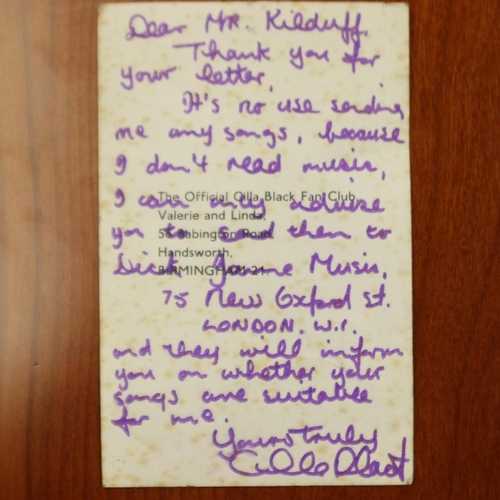 Dear MR. Kilduff,
Thank you for
your letter,
It's no use sending
me any songs, because
I don't read music,
I can only advise
you to send them to
Dick James Music,
75 New Oxford St.
LONDON. W.1.
and they will inform
you on whether your
songs are suitable
for me.
Yours truly
Cilla Black
The Official Cilla Black Fan Club,
Valerie and Linda,
56 Babington Road,
Handsworth,
BIRMINGHAM 21.